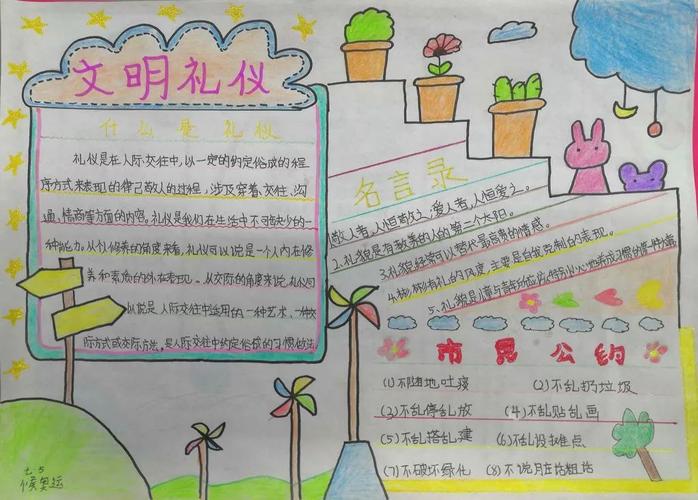 文明礼仪
什么是礼仪
礼仪是在人际交往中,以一定的约定俗成的程
序方式来表现的律己敬人的过程,涉及穿着、交往、沟
通、情商等方面的内容。礼仪是我们在生活中不可缺少的一
种能力。从个人修养的角度来看,礼仪可以说是一个人内在修
养和素质的外在表现。从交际的角度来说,礼仪可
以说是人际交往中适用的一种艺术、一种交
际方式或交际方法,是人际交往中约定俗成的习惯做法
名言录
1.敬人者,人恒敬之;爱人者,人恒爱之。
2.礼貌是有教养的人的第二个太阳。
3.礼貌经常可以替代最高贵的情感。
4.彬彬有礼的风度,主要是自我克制的表现。
5.礼貌是儿童与青年所应该特别小心地养成习惯的第一件大事
市民公约
(1)不随地吐痰
(2)不乱扔垃圾
(3)不乱停乱放
(4)不乱贴乱画
(5)不乱搭乱建
(6)不乱设摊点
(7)不破坏绿化
(8)不说脏话粗话
七.5